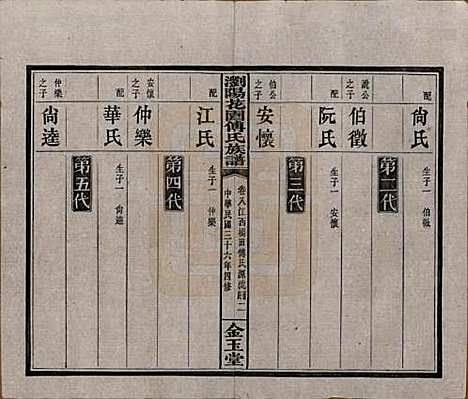 配 尙氏 生子一 伯徵
第二代
說公之子 伯徵
配 阮氏 生子一 安懷
第三代
伯公之子 安懷
瀏陽花園傅氏族譜
卷八江西 田傅氏源流圖二
中華民國三十六年四修
金玉堂
配 江氏 生子一 仲樂
第四代
安懷之子 仲樂
配 華氏 生子一 尙逵
第五代
仲樂之子 尙逵